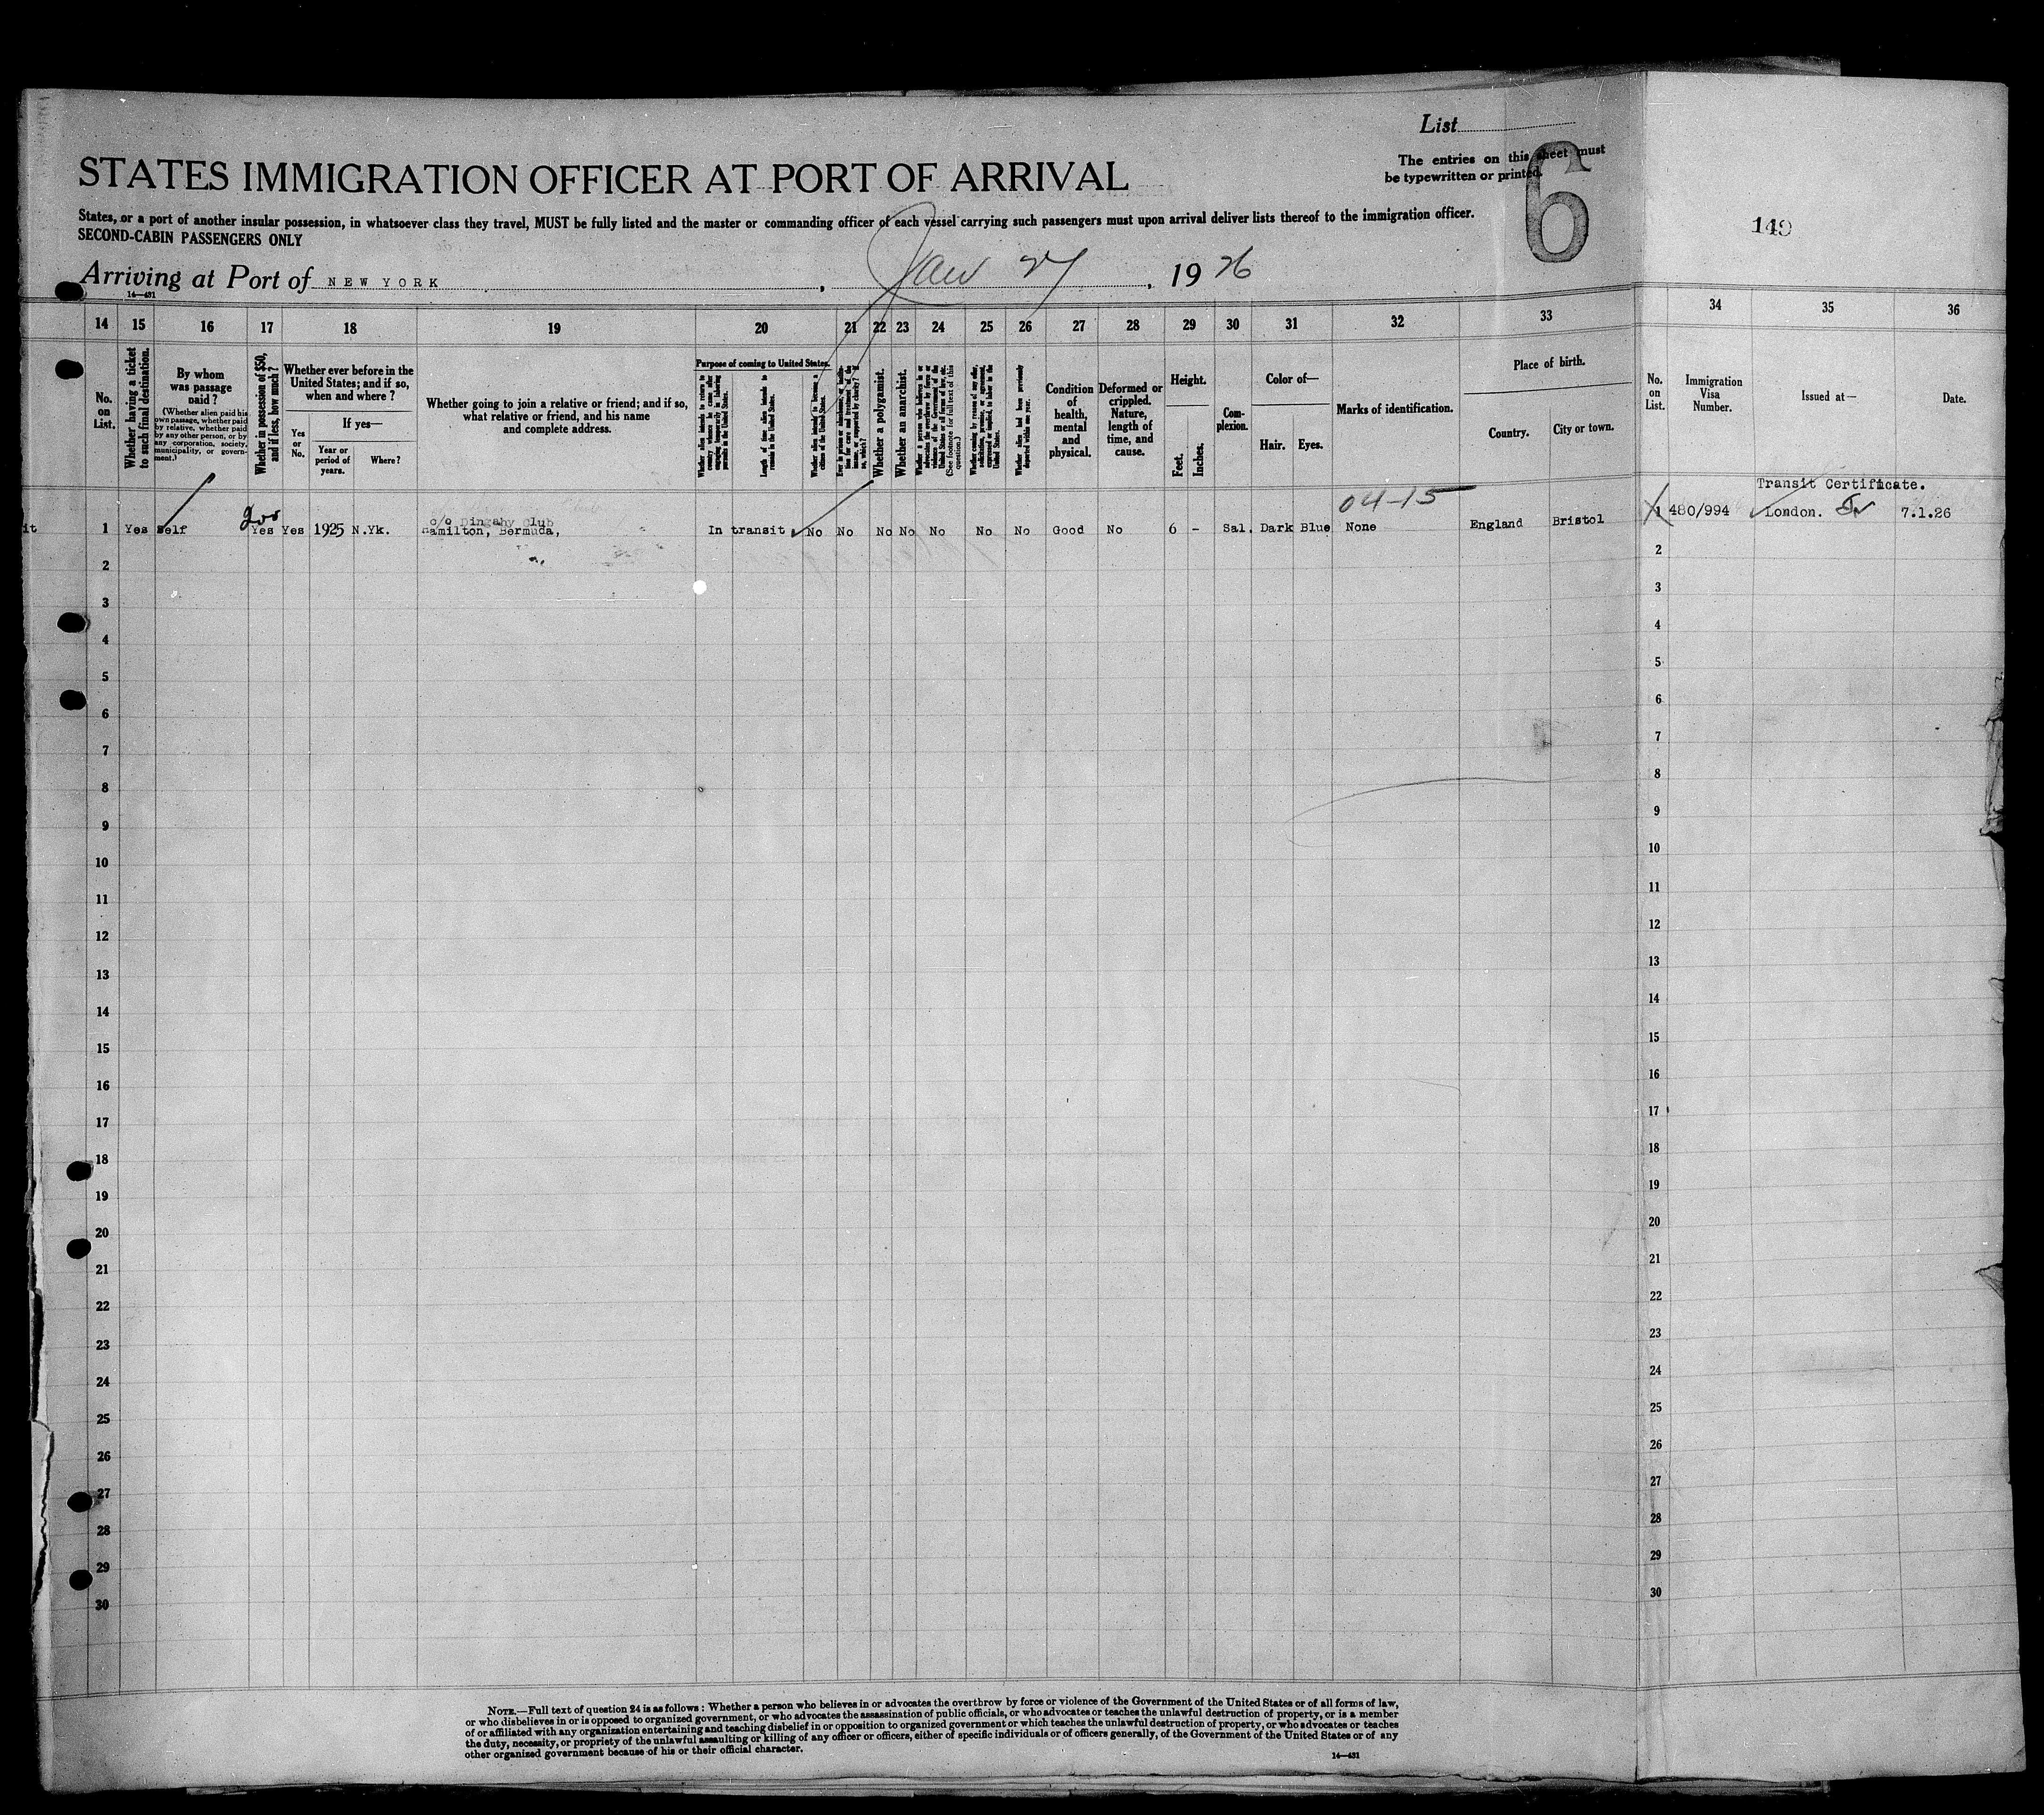 List
The entries on this sheet must
be typewritten or printed.
6
149
STATES IMMIGRATION OFFICER AT PORT OF ARRIVAL
States, or a port of another insular possession, in whatsoever class they travel, MUST be fully listed and the master or commanding officer of each vessel carrying such passengers must upon arrival deliver lists thereof to the immigration officer.
SECOND-CABIN PASSENGERS ONLY
Arriving at Port of NEW YORK, Jan 27, 1926
14—431
14 15 16 17 18 19 20 21 22 23 24 25 26 27 28 29 30 31 32 33 34 35 36
No. on List.
Whether having a ticket to such final destination.
By whom was passage paid?
(Whether alien paid his own passage, whether paid by relative, whether paid by any other person, or by any corporation, society, municipality, or government.)
Whether in possession of $50, and if less, how much?
Whether ever before in the United States; and if so, when and where?
Yes or No.
If yes—
Year or period of years.
Where?
Whether going to join a relative or friend; and if so, what relative or friend, and his name and complete address.
Purpose of coming to United States.
Whether alien intends to return to country whence he came after engaging temporarily in laboring pursuits in the United States.
Length of time alien intends to remain in the United States.
Whether alien intends to become a citizen of the United States.
Whether a polygamist.
Whether an anarchist.
(See footnote for full text of this question.)
Whether coming by reason of any offer, solicitation, promise, or agreement, expressed or implied, to labor in the United States.
Whether alien had been previously deported within one year.
Condition of health, mental and physical.
Deformed or crippled. Nature, length of time, and cause.
Height.
Feet.
Inches.
Complexion.
Color of—
Hair.
Eyes.
Marks of identification.
Place of birth.
Country.
City or town.
No. on List.
Immigration Visa Number.
Issued at—
Date.
04-15
Transit Certificate.
c/o Dingaby Club
it 1 Yes Self 200 Yes Yes 1925 N.Yk. Hamilton, Bermuda, In transit No No No No No No No Good No 6 - Sal. Dark Blue None England Bristol 1 480/994 London. 7.1.26
2 2
3 3
4 4
5 5
6 6
7 7
8 8
9 9
10 10
11 11
12 12
13 13
14 14
15 15
16 16
17 17
18 18
19 19
20 20
21 21
22 22
23 23
24 24
25 25
26 26
27 27
28 28
29 29
30 30
NOTE.—Full text of question 24 is as follows: Whether a person who believes in or advocates the overthrow by force or violence of the Government of the United States or of all forms of law,
or who disbelieves in or is opposed to organized government, or who advocates the assassination of public officials, or who advocates or teaches the unlawful destruction of property, or is a member
of or affiliated with any organization entertaining and teaching disbelief in or opposition to organized government or which teaches the unlawful destruction of property, or who advocates or teaches
the duty, necessity, or propriety of the unlawful assaulting or killing of any officer or officers, either of specific individuals or of officers generally, of the Government of the United States or of any
other organized government because of his or their official character.
14—431